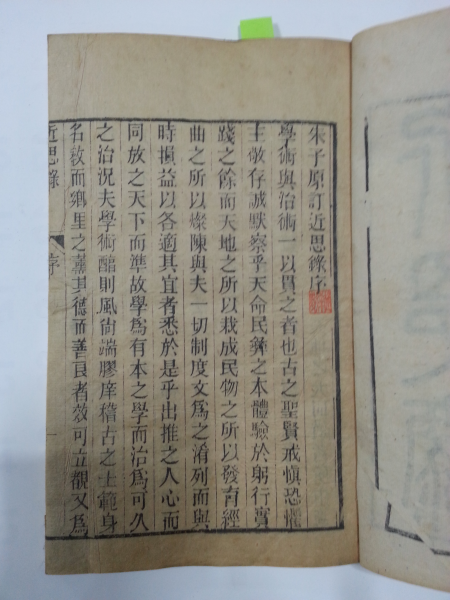 朱子原訂近思錄序
學術與治術一以貫之者也古之聖賢戒愼恐懼
主敬存誠默察乎天命民彝之本體驗於躬行實
踐之餘而天地之所以栽成民物之所以發育經
曲之所以燦陳與夫一切制度文爲之淆列而與
時損益以各適其宜者悉於是乎出推之人心而
同放之天下而準故學爲有本之學而治爲可久
之治況夫學術醕則風尙端膠庠稽古之士範身
名敎而鄉里之薰其德而善良者效可立觀又爲
近思錄
序